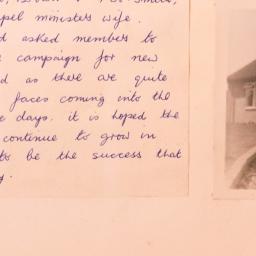 Smith,
pel ministers wife.
d asked members to
campaign for new
d as there are quite
faces coming into the
e days. it is hoped the
continue to grow in
to be the success that
y.